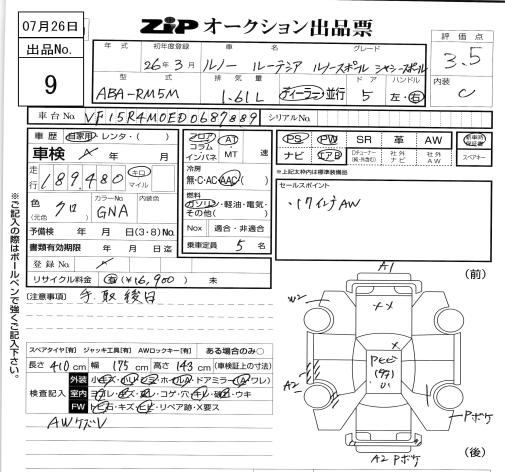 07月26日
出品No.
9
ZIP オークション出品票
評価点
3.5
内装
C
年式 初年度登録 車名 グレード
26年3月 ルノー ルーテシア ルノースポール シャシースポール
型式 排気量 ドア ハンドル
ABA-RM5M 1.61L ディーラー・並行 5 左・右
車台No. VF15R4M0ED0687889 シリアルNo.
車歴 自家用・レンタ・( )
車検 年 月
走行 189,480 キロ マイル
色 (元色) クロ カラーNo. GNA 内装色
予備検 年 月 日(3・8)No.
書類有効期限 年 月 日迄
登録No.
リサイクル料金 有(¥16,900) 未
フロア コラム インパネ AT MT 速
冷房
無・C・AC・AAC
燃料
ガソリン・軽油・電気・その他( )
Nox 適合・非適合
乗車定員 5 名
PS PW SR 革 AW
ナビ エアB Dチューナー (純・外含む) 社外ナビ 社外AW
新車時保証書
スペアキー
*上記太枠内は標準装備品
セールスポイント
・17インチAW
[注意事項] 手.取後日
スペアタイヤ[有] ジャッキ工具[有] AWロックキー[有] ある場合のみ○
長さ 410 cm 幅 175 cm 高さ 143 cm (車検証上の寸法)
検査記入
外装 小キズ・小凹・ ドアミラー( ワレ)
室内 ヨゴレ・キズ・スレ・コゲ・穴・キレ・ ・ウキ
FW トビ石・キズ・ヒビ・リペア跡・X要ス
AWケズV
※ご記入の際はボールペンで強くご記入下さい。
A1
(前)
W2
A2
Pボケ
A2 Pボケ
(後)